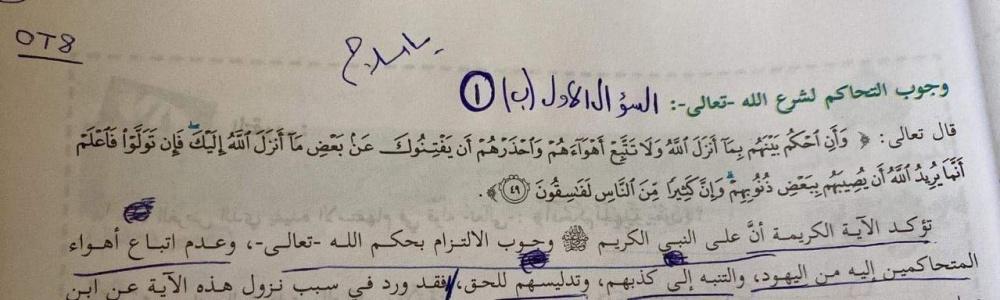 OT8
وجوب التحاكم لشرع الله -تعالى-: السؤال الاول (ب) ①
قال تعالى: ﴿ وَأَنِ ٱحۡكُم بَيۡنَهُم بِمَآ أَنزَلَ ٱللَّهُ وَلَا تَتَّبِعۡ أَهۡوَآءَهُمۡ وَٱحۡذَرۡهُمۡ أَن يَفۡتِنُوكَ عَنۢ بَعۡضِ مَآ أَنزَلَ ٱللَّهُ إِلَيۡكَۖ فَإِن تَوَلَّوۡاْ فَٱعۡلَمۡ
أَنَّمَا يُرِيدُ ٱللَّهُ أَن يُصِيبَهُم بِبَعۡضِ ذُنُوبِهِمۡۗ وَإِنَّ كَثِيرٗا مِّنَ ٱلنَّاسِ لَفَٰسِقُونَ ٤٩ ﴾.
تؤكد الآية الكريمة أنَّ على النبي الكريم ﷺ وجوب الالتزام بحكم الله -تعالى-، وعدم اتباع أهواء
المتحاكمين إليه من اليهود، والتنبه إلى كذبهم، وتدليسهم للحق، فقد ورد في سبب نزول هذه الآية عن ابن